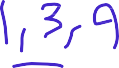 1, 3, 9